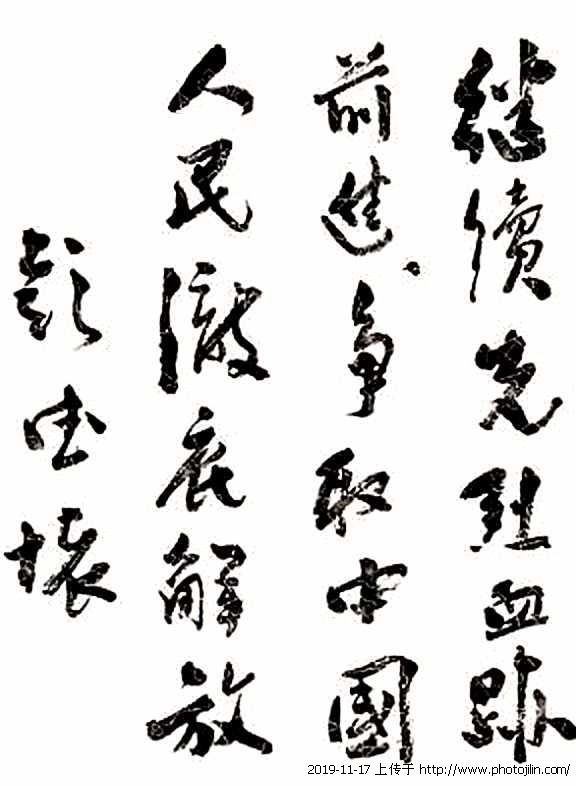 繼續先烈血跡
前進、爭取中國
人民澈底解放
彭德懷
2019-11-17 上传于 http://www.photojilin.com/